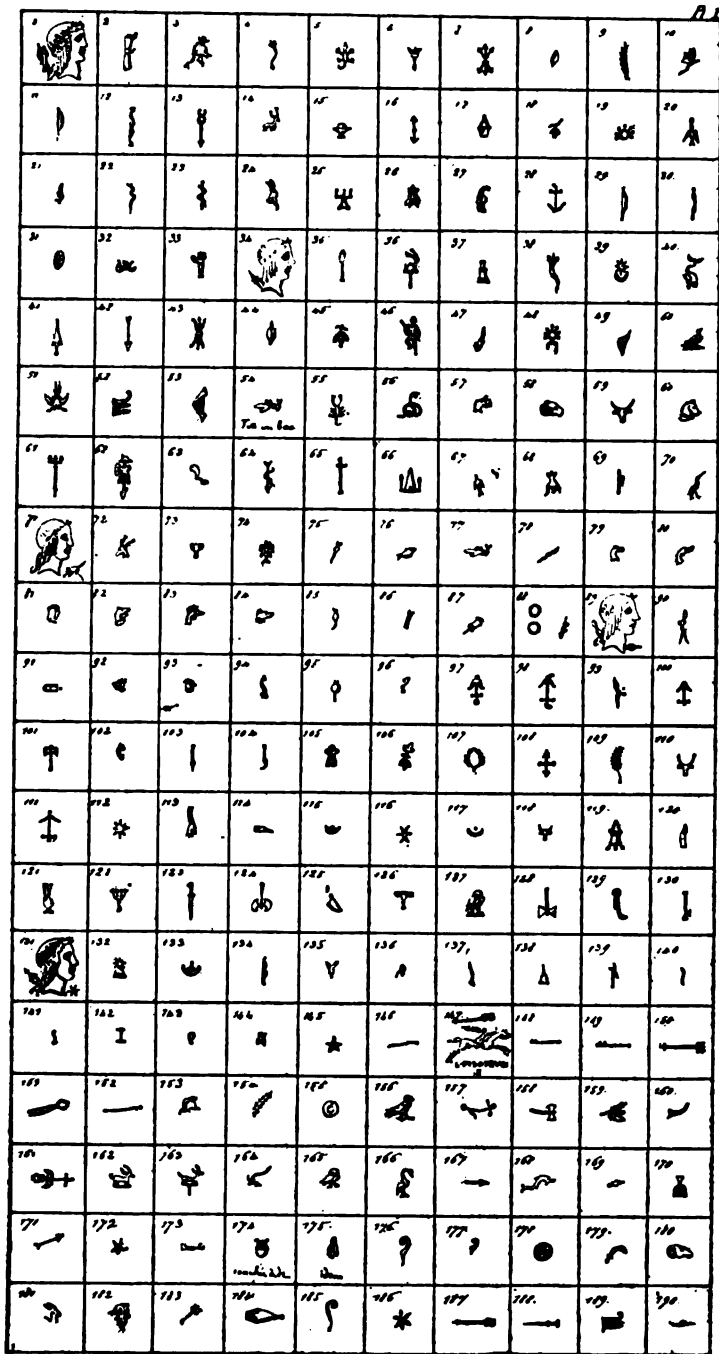 1 2 3 4 5 6 7 8 9 10
11 12 13 14 15 16 17 18 19 20
21 22 23 24 25 26 27 28 29 30
31 32 33 34 35 36 37 38 39 40
41 42 43 44 45 46 47 48 49 50
51 52 53 54 55 56 57 58 59 60
61 62 63 64 65 66 67 68 69 70
71 72 73 74 75 76 77 78 79 80
81 82 83 84 85 86 87 88 89 90
91 92 93 94 95 96 97 98 99 100
101 102 103 104 105 106 107 108 109 110
111 112 113 114 115 116 117 118 119 120
121 122 123 124 125 126 127 128 129 130
131 132 133 134 135 136 137 138 139 140
141 142 143 144 145 146 147 148 149 150
151 152 153 154 155 156 157 158 159 160
161 162 163 164 165 166 167 168 169 170
171 172 173 174 175 176 177 178 179 180
181 182 183 184 185 186 187 188 189 190